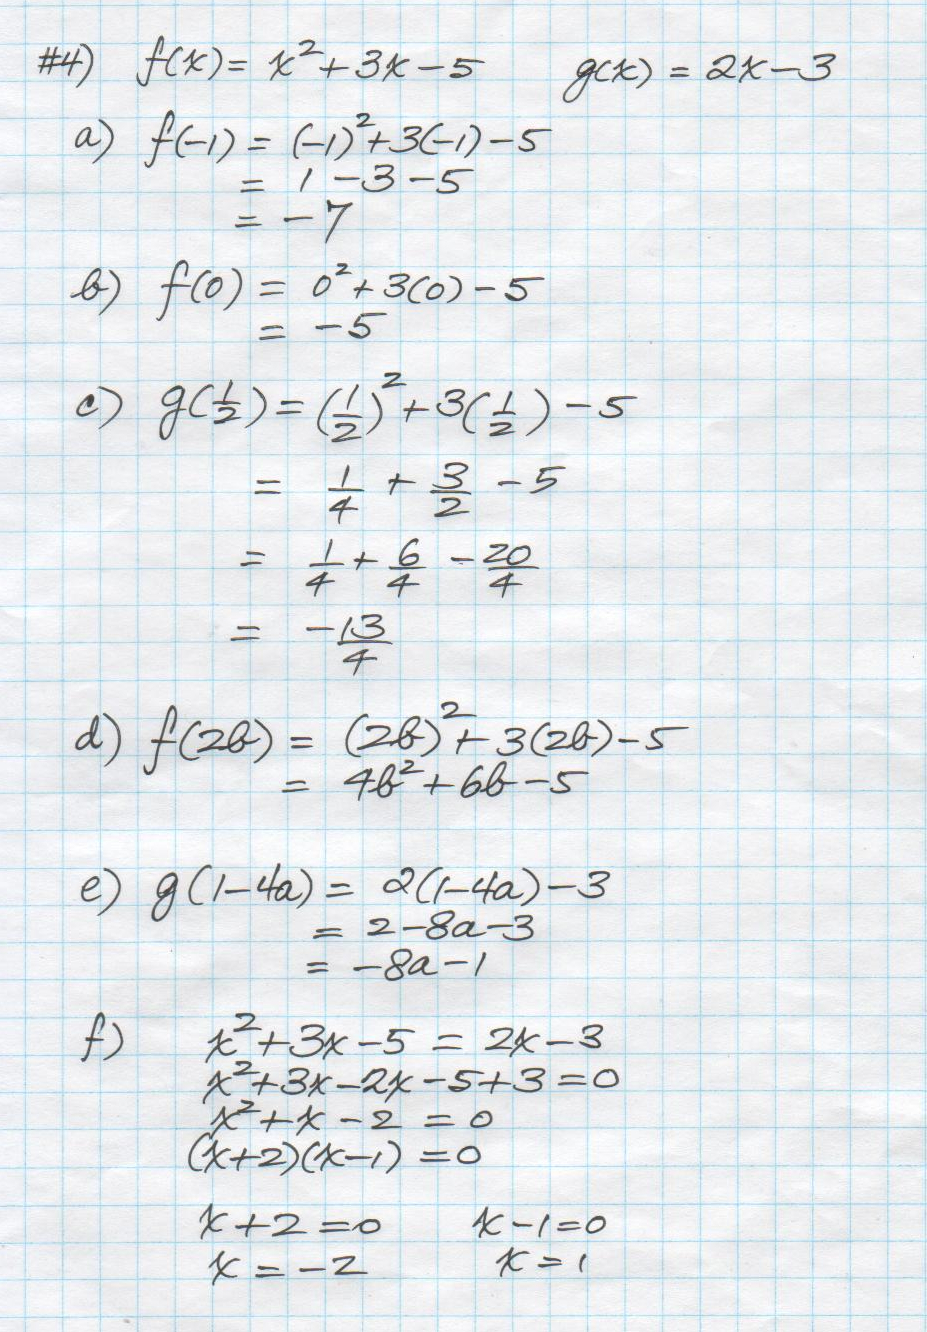 #4) f(x) = x² + 3x - 5 g(x) = 2x - 3
a) f(-1) = (-1)² + 3(-1) - 5
= 1 - 3 - 5
= -7
b) f(0) = 0² + 3(0) - 5
= -5
c) g(1/2) = (1/2)² + 3(1/2) - 5
= 1/4 + 3/2 - 5
= 1/4 + 6/4 - 20/4
= -13/4
d) f(2b) = (2b)² + 3(2b) - 5
= 4b² + 6b - 5
e) g(1-4a) = 2(1-4a) - 3
= 2 - 8a - 3
= -8a - 1
f) x² + 3x - 5 = 2x - 3
x² + 3x - 2x - 5 + 3 = 0
x² + x - 2 = 0
(x+2)(x-1) = 0
x + 2 = 0 x - 1 = 0
x = -2 x = 1